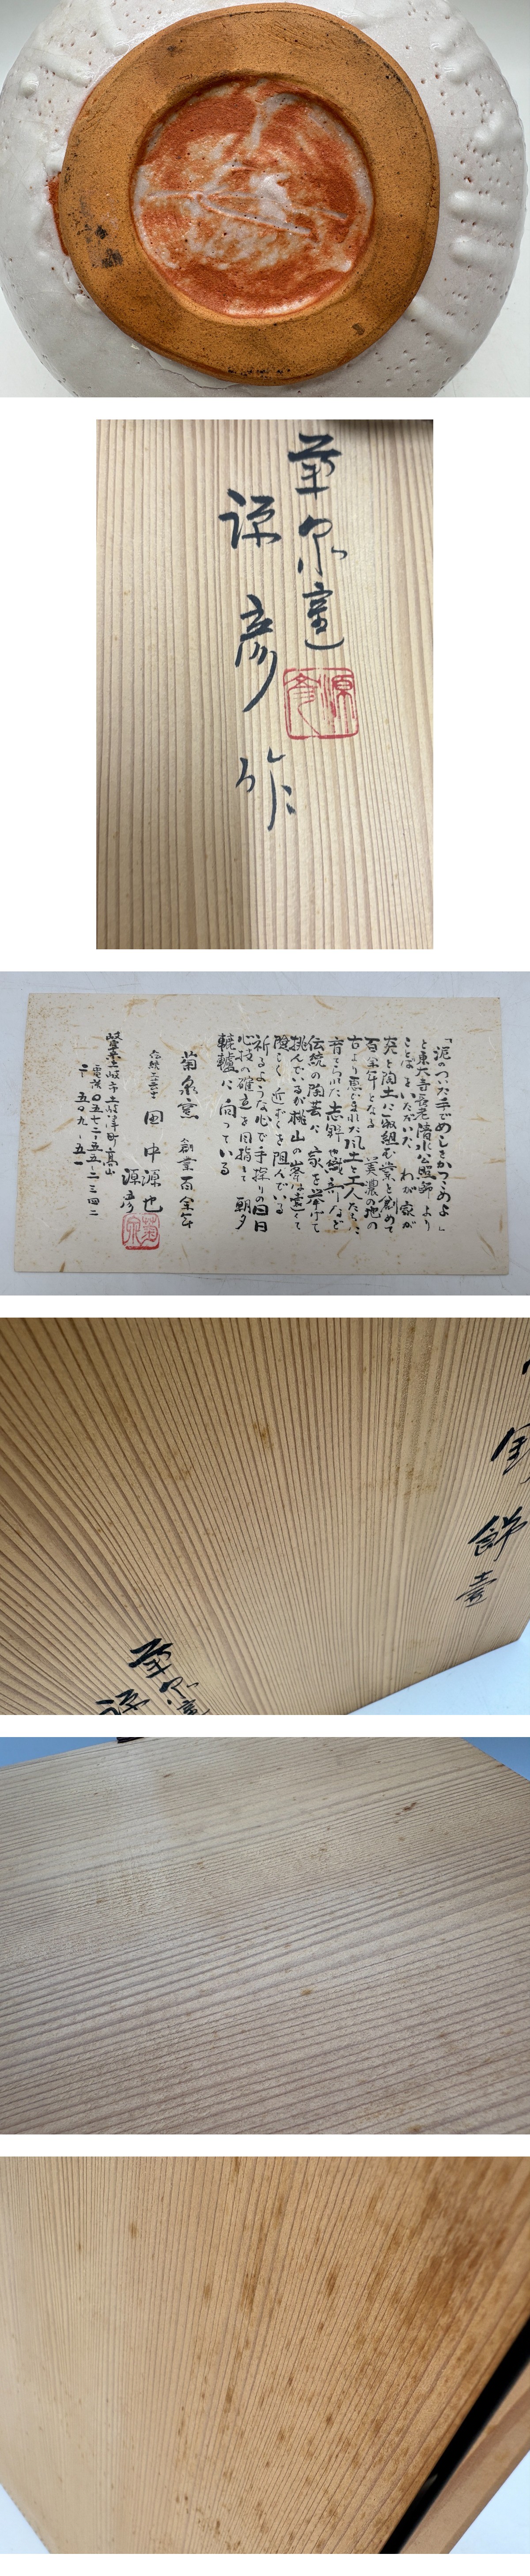 菊泉窯
源彦作
源彦
「泥のついた手でめしをかっこめよ」
と東大寺長老清水公照師より
ことばをいただいた わが家が
炎と陶土に取組む業を創めて
百余年となる 美濃の地の
古より恵まれた風土と工人たちに
育まれた志野や織部など
伝統の陶芸に家を挙げて
挑んでいるが桃山の峯は遠くて
険しく近ずくを阻んでいる
祈るような心で手探りの毎日
心技の確達を目指して朝夕
轆轤に向っている
菊泉窯 創業百余年
伝統工芸士 田中源也
源彦
菊泉
岐阜県土岐市土岐津町高山
電話〇五七二-五五-二三四二
〒五〇九-五一
飾壷
菊泉窯
源